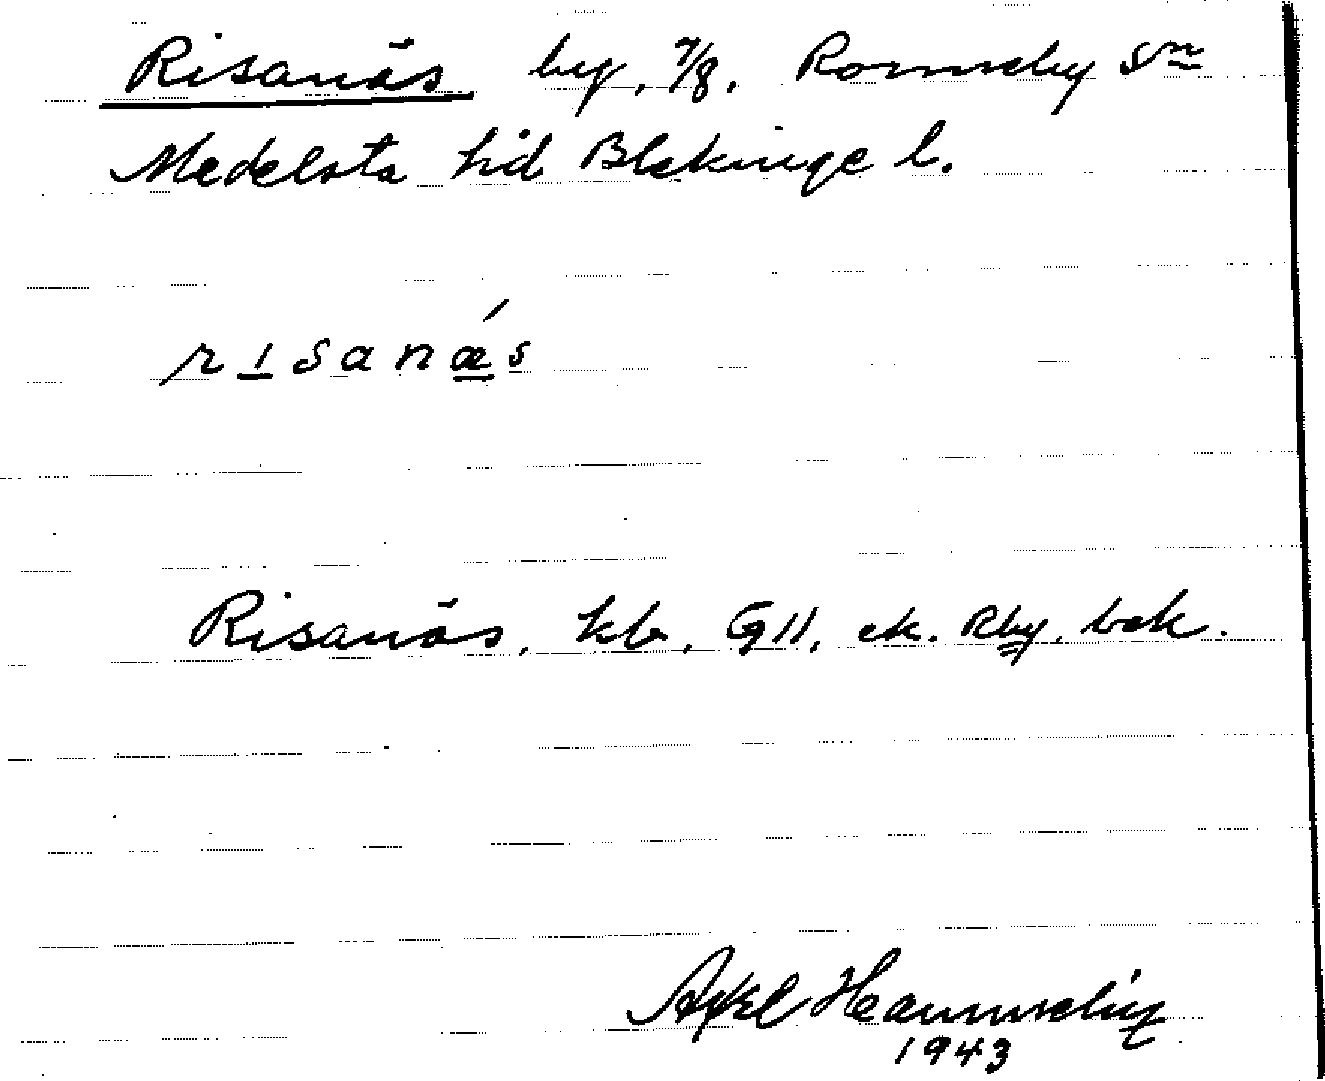 Risanäs by, 7/8, Romeby Sn
Medelsta hd Blekinge l.
risanæ´s
Risanäs, kb, GII, ek. Rby. bek.
Axel
1943